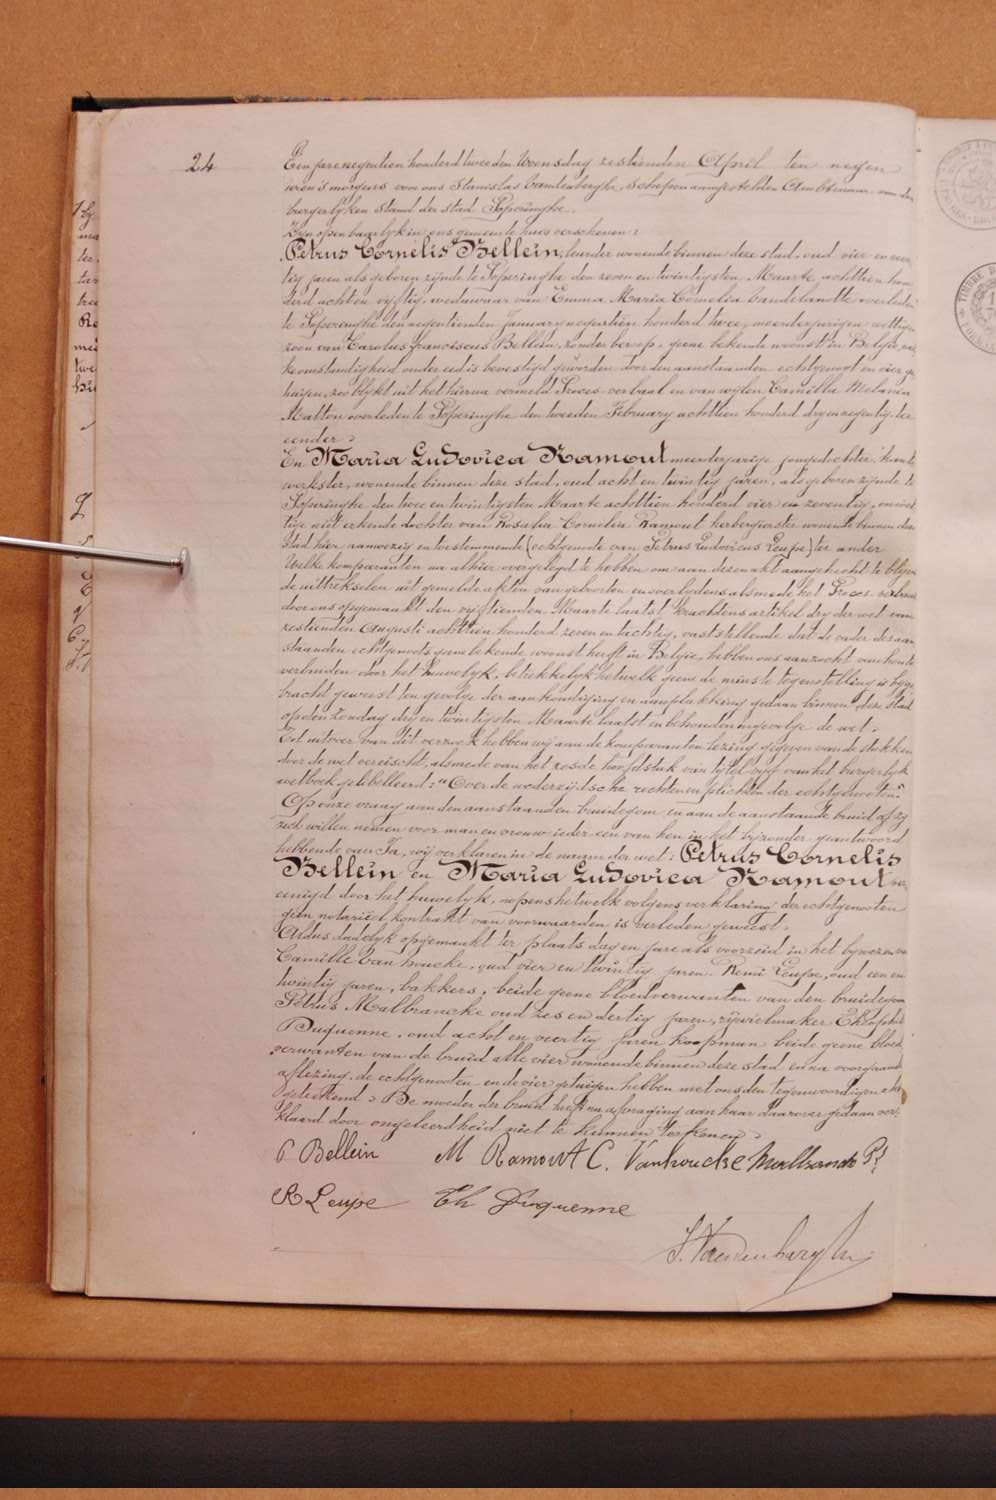 24
Een jare negentien honderd twee den Woensdag zestienden April ten negen
uren 's morgens voor ons Stanislas Vandenberghe, Schepen aangestelden Ambtenaar van den
burgerlyken Stand der stad Poperinghe.
Zyn openbaarlyk in ons gemeentehuis verschenen:
Petrus Cornelis Bellein, leurder woonende binnen deze stad, oud vier en veer-
tig jaren als geboren zynde te Poperinghe den zeven en twintigsten Maarte achttien hon-
derd acht en vyftig, weduwaar van Emma Maria Cornelia Vandelanotte overleden
te Poperinghe den negentienden January negentien honderd twee, meerderjarigen wettigen
zoon van Carolus franciscus Bellein, zonder beroep, geene bekende woonst in België,
ke omstandigheid onder eed is bevestigd geworden door den aanstaanden echtgenoot en vier ge-
tuigen, zoo blykt uit het hierna vermeld Proces-verbaal en van wylen Camilla Melania
Matton overleden te Poperinghe den tweeden February achttien honderd dry en negentig, ter
eender;
En Maria Ludovica Ramout meerderjarige jongedochter, kant-
werkster, woonende binnen deze stad, oud acht en twintig jaren, als geboren zynde te
Poperinghe den twee en twintigsten Maarte achttien honderd vier en zeventig, onwet-
tige niet erkende dochter van Rosalia Cornelia Ramout herbergierster woonende binnen deze
stad hier aanwezig en toestemmende (echtgenoote van Petrus Ludovicus Leupe) ter ander
Welke komparanten na alhier overgelegd te hebben om aan dezen akt aangehecht te blyven
de uittrekselen uit gemelde akten van geboorten en overlydens alsmede het Proces-verbaal
door ons opgemaakt den vyftienden Maarte laatst krachtens artikel dry der wet van
zestienden Augusti achttien honderd zeven en tachtig, vaststellende dat de vader des aan-
staanden echtgenoots geene bekende woonst heeft in België, hebben ons aanzocht van hen te
verbinden door het huwelyk, betrekkelyk hetwelk geene de minste tegenstelling is byge-
bracht geweest ten gevolge der aankondiging en aanplakking gedaan binnen deze stad
op den Zondag dry en twintigsten Maarte laatst en behouden ingevolge de wet.
Tot uitvoer van dit verzoek hebben wy aan de komparanten lezing gegeven van de stukken
door de wet vereischt, alsmede van het zesde hoofdstuk van tytel vyf van het burgerlyk
wetboek getibelleerd: "Over de wederzydsche rechten en plichten der echtgenooten."
Op onze vraag aan den aanstaanden bruidegom en aan de aanstaande bruid of zy
zich willen nemen voor man en vrouw ieder een van hen in het byzonder geantwoord
hebbende van Ja, wy verklaren in de naam der wet: Petrus Cornelis
Bellein en Maria Ludovica Ramout ver-
eenigd door het huwelyk, nopens hetwelk volgens verklaring der echtgenooten
geen notariëel kontrakt van voorwaarden is verleden geweest.
Aldus dadelyk opgemaakt ter plaats dag en jare als voorzeid in het bywezen van
Camille Van houcke, oud vier en twintig jaren, Remi Leupe, oud een en
twintig jaren, bakkers, beide geene bloedverwanten van den bruidegom
Petrus Malbrancke oud zes en dertig jaren, rywielmaker Théophile
Duquenne, oud acht en veertig jaren koopman beide geene bloed-
verwanten van de bruid alle vier woonende binnen deze stad en na voorgaande
aflezing, de echtgenooten en de vier getuigen hebben met ons den tegenwoordigen akt
geteekend; De moeder der bruid heeft na afvraging aan haar daarover gedaan ver-
klaard door ongeleerdheid niet te kunnen teekenen.
P Bellein M Ramout C. Vanhoucke Malbrancke Pr
R Leupe Th Duquenne
S. Vandenberghe